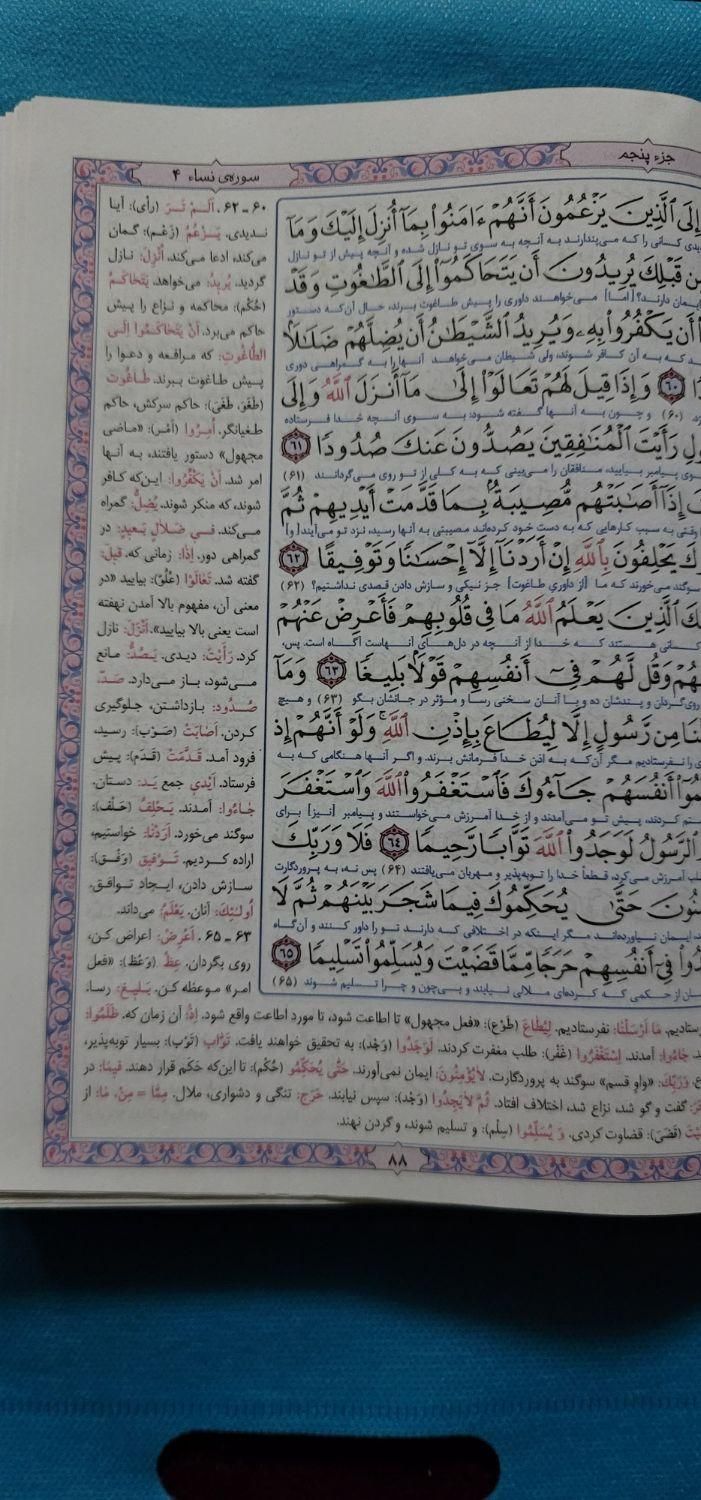 جزء پنجم
سوره‌ی نساء ۴
إِلَى ٱلَّذِينَ يَزْعُمُونَ أَنَّهُمْ ءَامَنُوا۟ بِمَآ أُنزِلَ إِلَيْكَ وَمَآ
دیدی کسانی را که می‌پندارند به آنچه به سوی تو نازل شده و آنچه پیش از تو نازل
مِن قَبْلِكَ يُرِيدُونَ أَن يَتَحَاكَمُوٓا۟ إِلَى ٱلطَّـٰغُوتِ وَقَدْ
ایمان دارند؟ [اما] می‌خواهند داوری را پیش طاغوت برند، حال آن‌که دستور
أَن يَكْفُرُوا۟ بِهِۦ وَيُرِيدُ ٱلشَّيْطَـٰنُ أَن يُضِلَّهُمْ ضَلَـٰلًۢا
که به آن کافر شوند، ولی شیطان می‌خواهد آنها را به گمراهی دوری
﴿۶۰﴾ وَإِذَا قِيلَ لَهُمْ تَعَالَوْا۟ إِلَىٰ مَآ أَنزَلَ ٱللَّهُ وَإِلَى
(۶۰) و چون به آنها گفته شود: به سوی آنچه خدا فرستاده
رَأَيْتَ ٱلْمُنَـٰفِقِينَ يَصُدُّونَ عَنكَ صُدُودًا ﴿۶۱﴾
پیامبر بیایید، منافقان را می‌بینی که به کلی از تو روی می‌گردانند (۶۱)
إِذَآ أَصَـٰبَتْهُم مُّصِيبَةٌۢ بِمَا قَدَّمَتْ أَيْدِيهِمْ ثُمَّ
وقتی به سبب کارهایی که به دست خود کرده‌اند مصیبتی به آنها رسید، نزد تو می‌آیند [و]
يَحْلِفُونَ بِٱللَّهِ إِنْ أَرَدْنَآ إِلَّآ إِحْسَـٰنًا وَتَوْفِيقًا ﴿۶۲﴾
سوگند می‌خورند که ما [از داوری طاغوت] جز نیکی و سازش دادن قصدی نداشتیم؟ (۶۲)
ٱلَّذِينَ يَعْلَمُ ٱللَّهُ مَا فِى قُلُوبِهِمْ فَأَعْرِضْ عَنْهُمْ
کسانی هستند که خدا از آنچه در دل‌های آنهاست آگاه است. پس،
وَقُل لَّهُمْ فِىٓ أَنفُسِهِمْ قَوْلًۢا بَلِيغًا ﴿۶۳﴾ وَمَآ
روی گردان و پندشان ده و با آنان سخنی رسا و مؤثر در جانشان بگو (۶۳) و هیچ
مِن رَّسُولٍ إِلَّا لِيُطَاعَ بِإِذْنِ ٱللَّهِ ۚ وَلَوْ أَنَّهُمْ إِذ
را نفرستادیم مگر آن‌که به اذن خدا فرمانش برند. و اگر آنها هنگامی که به
أَنفُسَهُمْ جَآءُوكَ فَٱسْتَغْفَرُوا۟ ٱللَّهَ وَٱسْتَغْفَرَ
ستم کردند، پیش تو می‌آمدند و از خدا آمرزش می‌خواستند و پیامبر [نیز] برای
ٱلرَّسُولُ لَوَجَدُوا۟ ٱللَّهَ تَوَّابًا رَّحِيمًا ﴿۶۴﴾ فَلَا وَرَبِّكَ
طلب آمرزش می‌کرد، قطعاً خدا را توبه‌پذیر و مهربان می‌یافتند (۶۴) پس نه، به پروردگارت
حَتَّىٰ يُحَكِّمُوكَ فِيمَا شَجَرَ بَيْنَهُمْ ثُمَّ لَا
ایمان نیاورده‌اند مگر اینکه در اختلافی که دارند تو را داور کنند و آن‌گاه
فِىٓ أَنفُسِهِمْ حَرَجًا مِّمَّا قَضَيْتَ وَيُسَلِّمُوا۟ تَسْلِيمًا ﴿۶۵﴾
از حکمی که کرده‌ای ملالی نیابند و بی‌چون و چرا تسلیم شوند (۶۵)
۶۰ ـ ۶۲ . اَلَمْ تَرَ (رأی): آیا
ندیدی. یَزْعُمُ (زَعْم): گمان
می‌کند، ادعا می‌کند. أُنْزِلَ: نازل
گردید. یُریدُ: می‌خواهد. یَتَحاکَمُ
(حُکْم): محاکمه و نزاع را پیش
حاکم می‌برد. اَنْ یَتَحاکَمُوا إلَی
الطّاغُوتِ: که مرافعه و دعوا را
پیش طاغوت ببرند. طاغُوت
(طَغَوَ، طَغَیَ): حاکم سرکش، حاکم
طغیانگر. اُمِرُوا (اَمْر): «ماضی
مجهول» دستور یافتند، به آنها
امر شد. اَنْ یَکْفُرُوا: این‌که کافر
شوند، که منکر شوند. یُضِلُّ: گمراه
می‌کند. فی ضَلالٍ بَعیدٍ: در
گمراهی دور. اِذا: زمانی که. قیلَ:
گفته شد. تَعالَوْا (عُلُوّ): بیایید «در
معنی آن، مفهوم بالا آمدن نهفته
است یعنی بالا بیایید». اَنْزَلَ: نازل
کرد. رَاَیْتَ: دیدی. یَصُدُّ: مانع
می‌شود، باز می‌دارد. صَدّ،
صُدُود: بازداشتن، جلوگیری
کردن. اَصابَتْ (صَوْب): رسید،
فرود آمد. قَدَّمَتْ (قَدَم): پیش
فرستاد. اَیْدی جمع یَد: دستان.
جاءُوا: آمدند. یَحْلِفُ (حَلْف):
سوگند می‌خورد. اَرَدْنا: خواستیم،
اراده کردیم. تَوْفیق (وَفْق):
سازش دادن، ایجاد توافق.
اُولئِکَ: آنان. یَعْلَمُ: می‌داند.
۶۳ ـ ۶۵ . اَعْرِضْ: اعراض کن،
روی بگردان. عِظْ (وَعْظ): «فعل
امر» موعظه کن. بَلیغ: رسا.
ما اَرْسَلْنا: نفرستادیم. لِیُطاعَ (طَوْع): «فعل مجهول» تا اطاعت شود، تا مورد اطاعت واقع شود. اِذْ: آن زمان که. ظَلَمُوا:
جاءُوا: آمدند. اِسْتَغْفَرُوا (غَفْر): طلب مغفرت کردند. لَوَجَدُوا (وَجْد): به تحقیق خواهند یافت. تَوّاب (تَوْب): بسیار توبه‌پذیر،
وَرَبِّکَ: «واو قسم» سوگند به پروردگارت. لایُؤْمِنُونَ: ایمان نمی‌آورند. حَتّی یُحَکِّمُو (حُکْم): تا این‌که حَکَم قرار دهند. فیما: در
گفت و گو شد، نزاع شد، اختلاف افتاد. ثُمَّ لایَجِدُوا (وَجْد): سپس نیابند. حَرَج: تنگی و دشواری، ملال. مِمّا = مِنْ، ما: از
(قَضَیَ): قضاوت کردی. وَ یُسَلِّمُوا (سِلْم): و تسلیم شوند، و گردن نهند.
۸۸